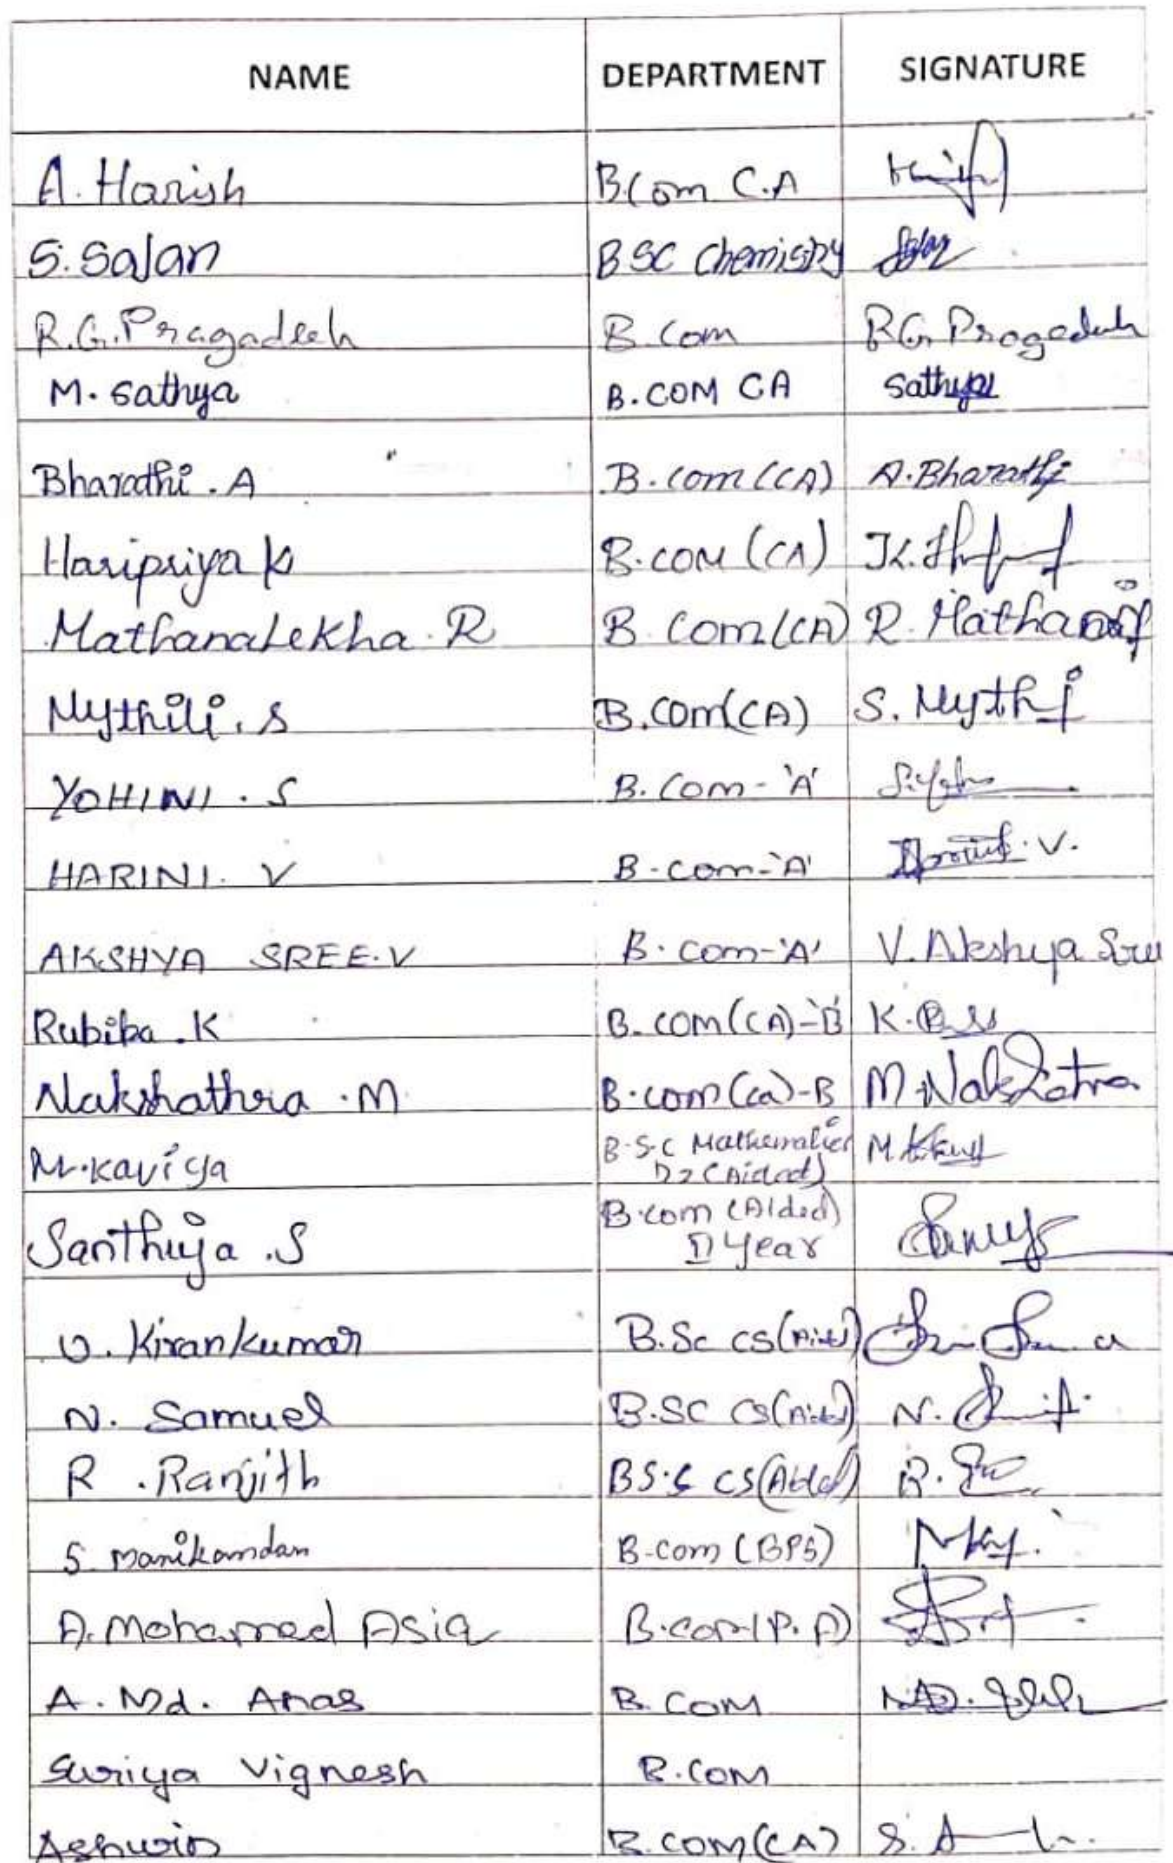 NAME DEPARTMENT SIGNATURE
A. Harish B.Com C.A
S. Sajan BSC Chemistry Sajan
R.G. Pragadeeh B.Com R.G. Pragadeeh
M. Sathya B.COM CA Sathya
Bharathi . A B.com (CA) A. Bharathi
Haripriya K B.COM (CA) K.
Mathanalekha . R B.Com (CA) R. Mathana
Mythili . S B.Com (CA) S. Mythi
YOHINI . S B.Com - 'A' S.
HARINI . V B.com - 'A' V.
AKSHYA SREE.V B.com - 'A' V. Akshya Sree
Rubika . K B.com (CA) - 'B' K.
Nakshathra . M B.com (ca) - B M. Nakshatra
M. Kaviya B.S.C Mathematics M.
(Aided)
Santhiya . S B.com (Aided)
II year
Kirankumar B.Sc CS (Aided)
N. Samuel B.SC CS (Aided) N.
R . Ranjith B.S.C CS (Aided) R.
S. Manikandan B.com (BPS)
A. Mohamed Asiq B.com (P.A)
A. Md. Anas B.COM
Suriya Vignesh B.COM
Ashwin B.COM (CA) S. A